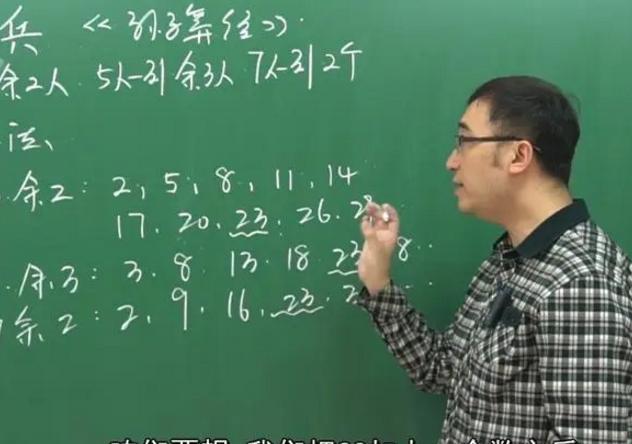 兵 《孙子算经》.
余2人 5人一列余3人 7人一列2个
法、
余2: 2, 5, 8, 11, 14
17. 20. 23. 26. 2
余3: 3. 8. 13. 18. 23. 8..
余2: 2. 9. 16. 23. 2